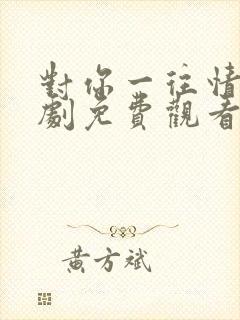 對你一往情
劇免費觀看
黃方斌